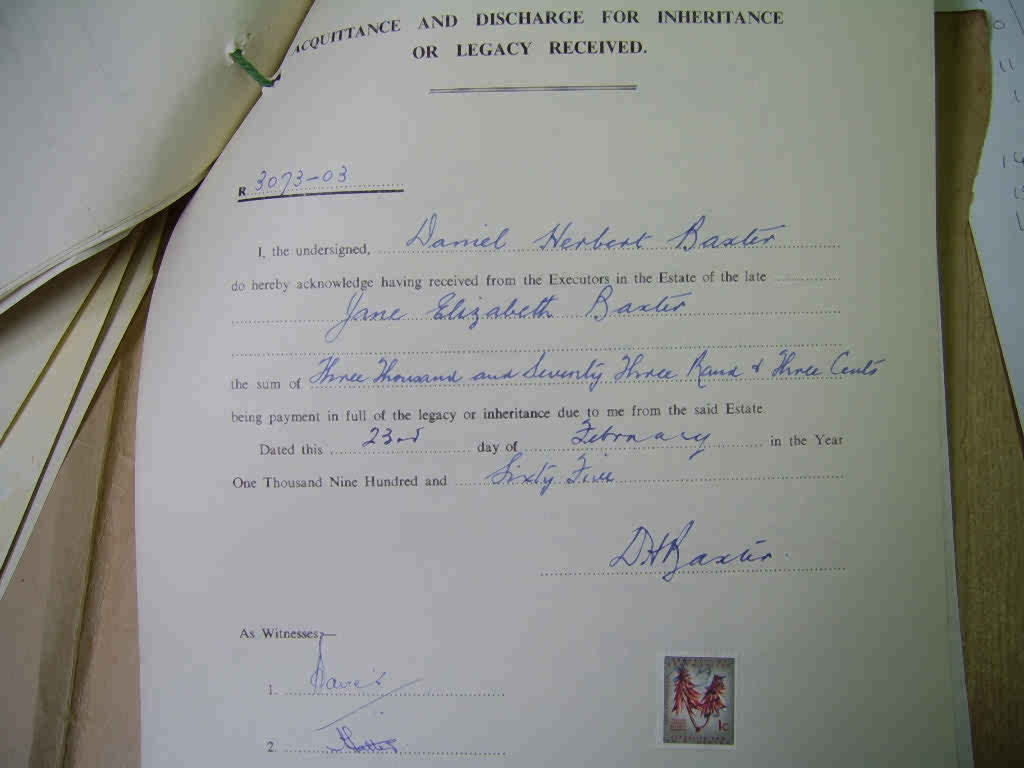 ACQUITTANCE AND DISCHARGE FOR INHERITANCE
OR LEGACY RECEIVED.
R 3073-03
I, the undersigned, Daniel Herbert Baxter
do hereby acknowledge having received from the Executors in the Estate of the late
Jane Elizabeth Baxter
the sum of Three Thousand and Seventy Three Rand & Three Cents
being payment in full of the legacy or inheritance due to me from the said Estate.
Dated this 23rd day of February in the Year
One Thousand Nine Hundred and Sixty Five
DHBaxter.
As Witnesses:—
1.
2.